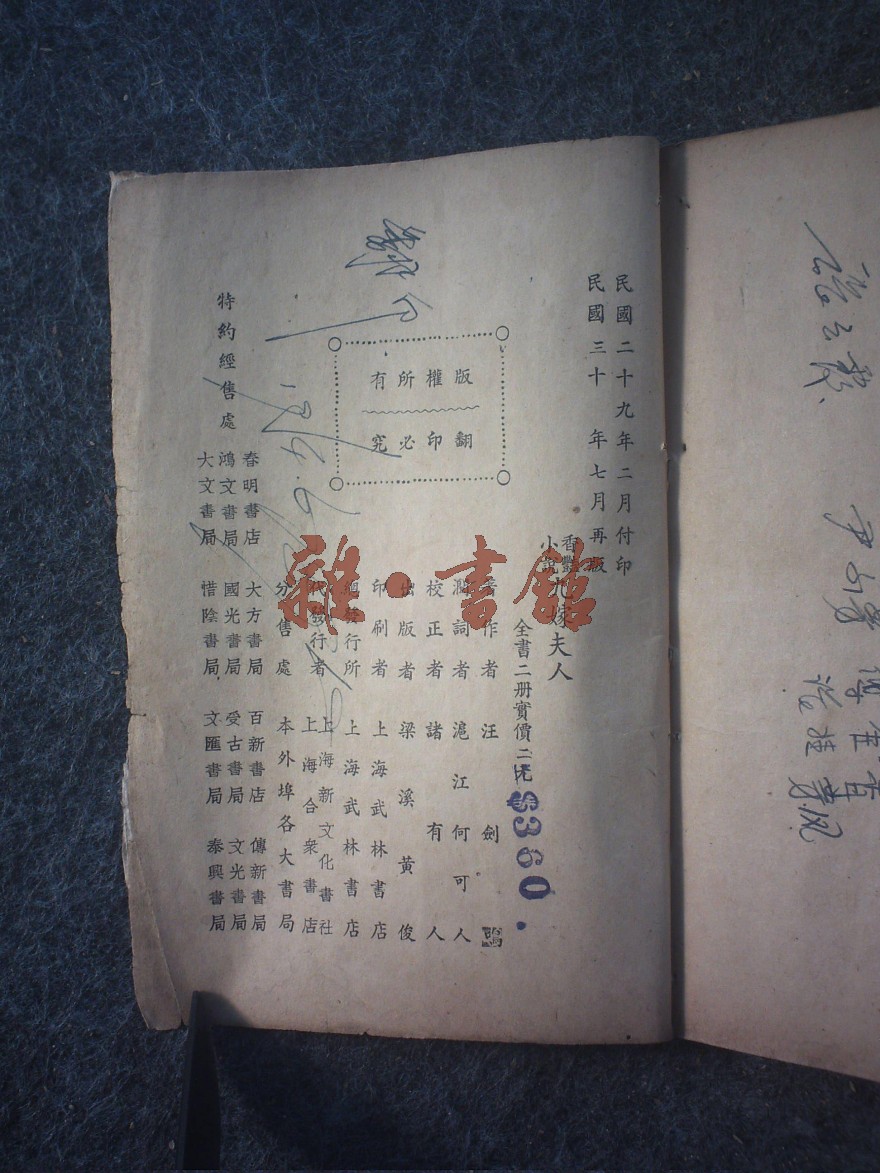 民國二十九年二月付印
民國三十年七月再版
香艷小說 九嫁夫人
全書二册實價二元
$360.
著作者 汪劍鳴
潤詞者 滬江何可人
校正者 諸有人
出版者 梁溪黃俊
印刷者 上海武林書店
總發行所 上海武林書店
代發行者 上海新文化書社 上海合衆書店
分售處 本外埠各大書局
版權所有
翻印必究
特約經售處
春明書店 大方書局 百新書店 傳新書局
鴻文書局 國光書局 受古書局 文光書局
大文書局 惜陰書局 文匯書局 泰興書局
雜·書館